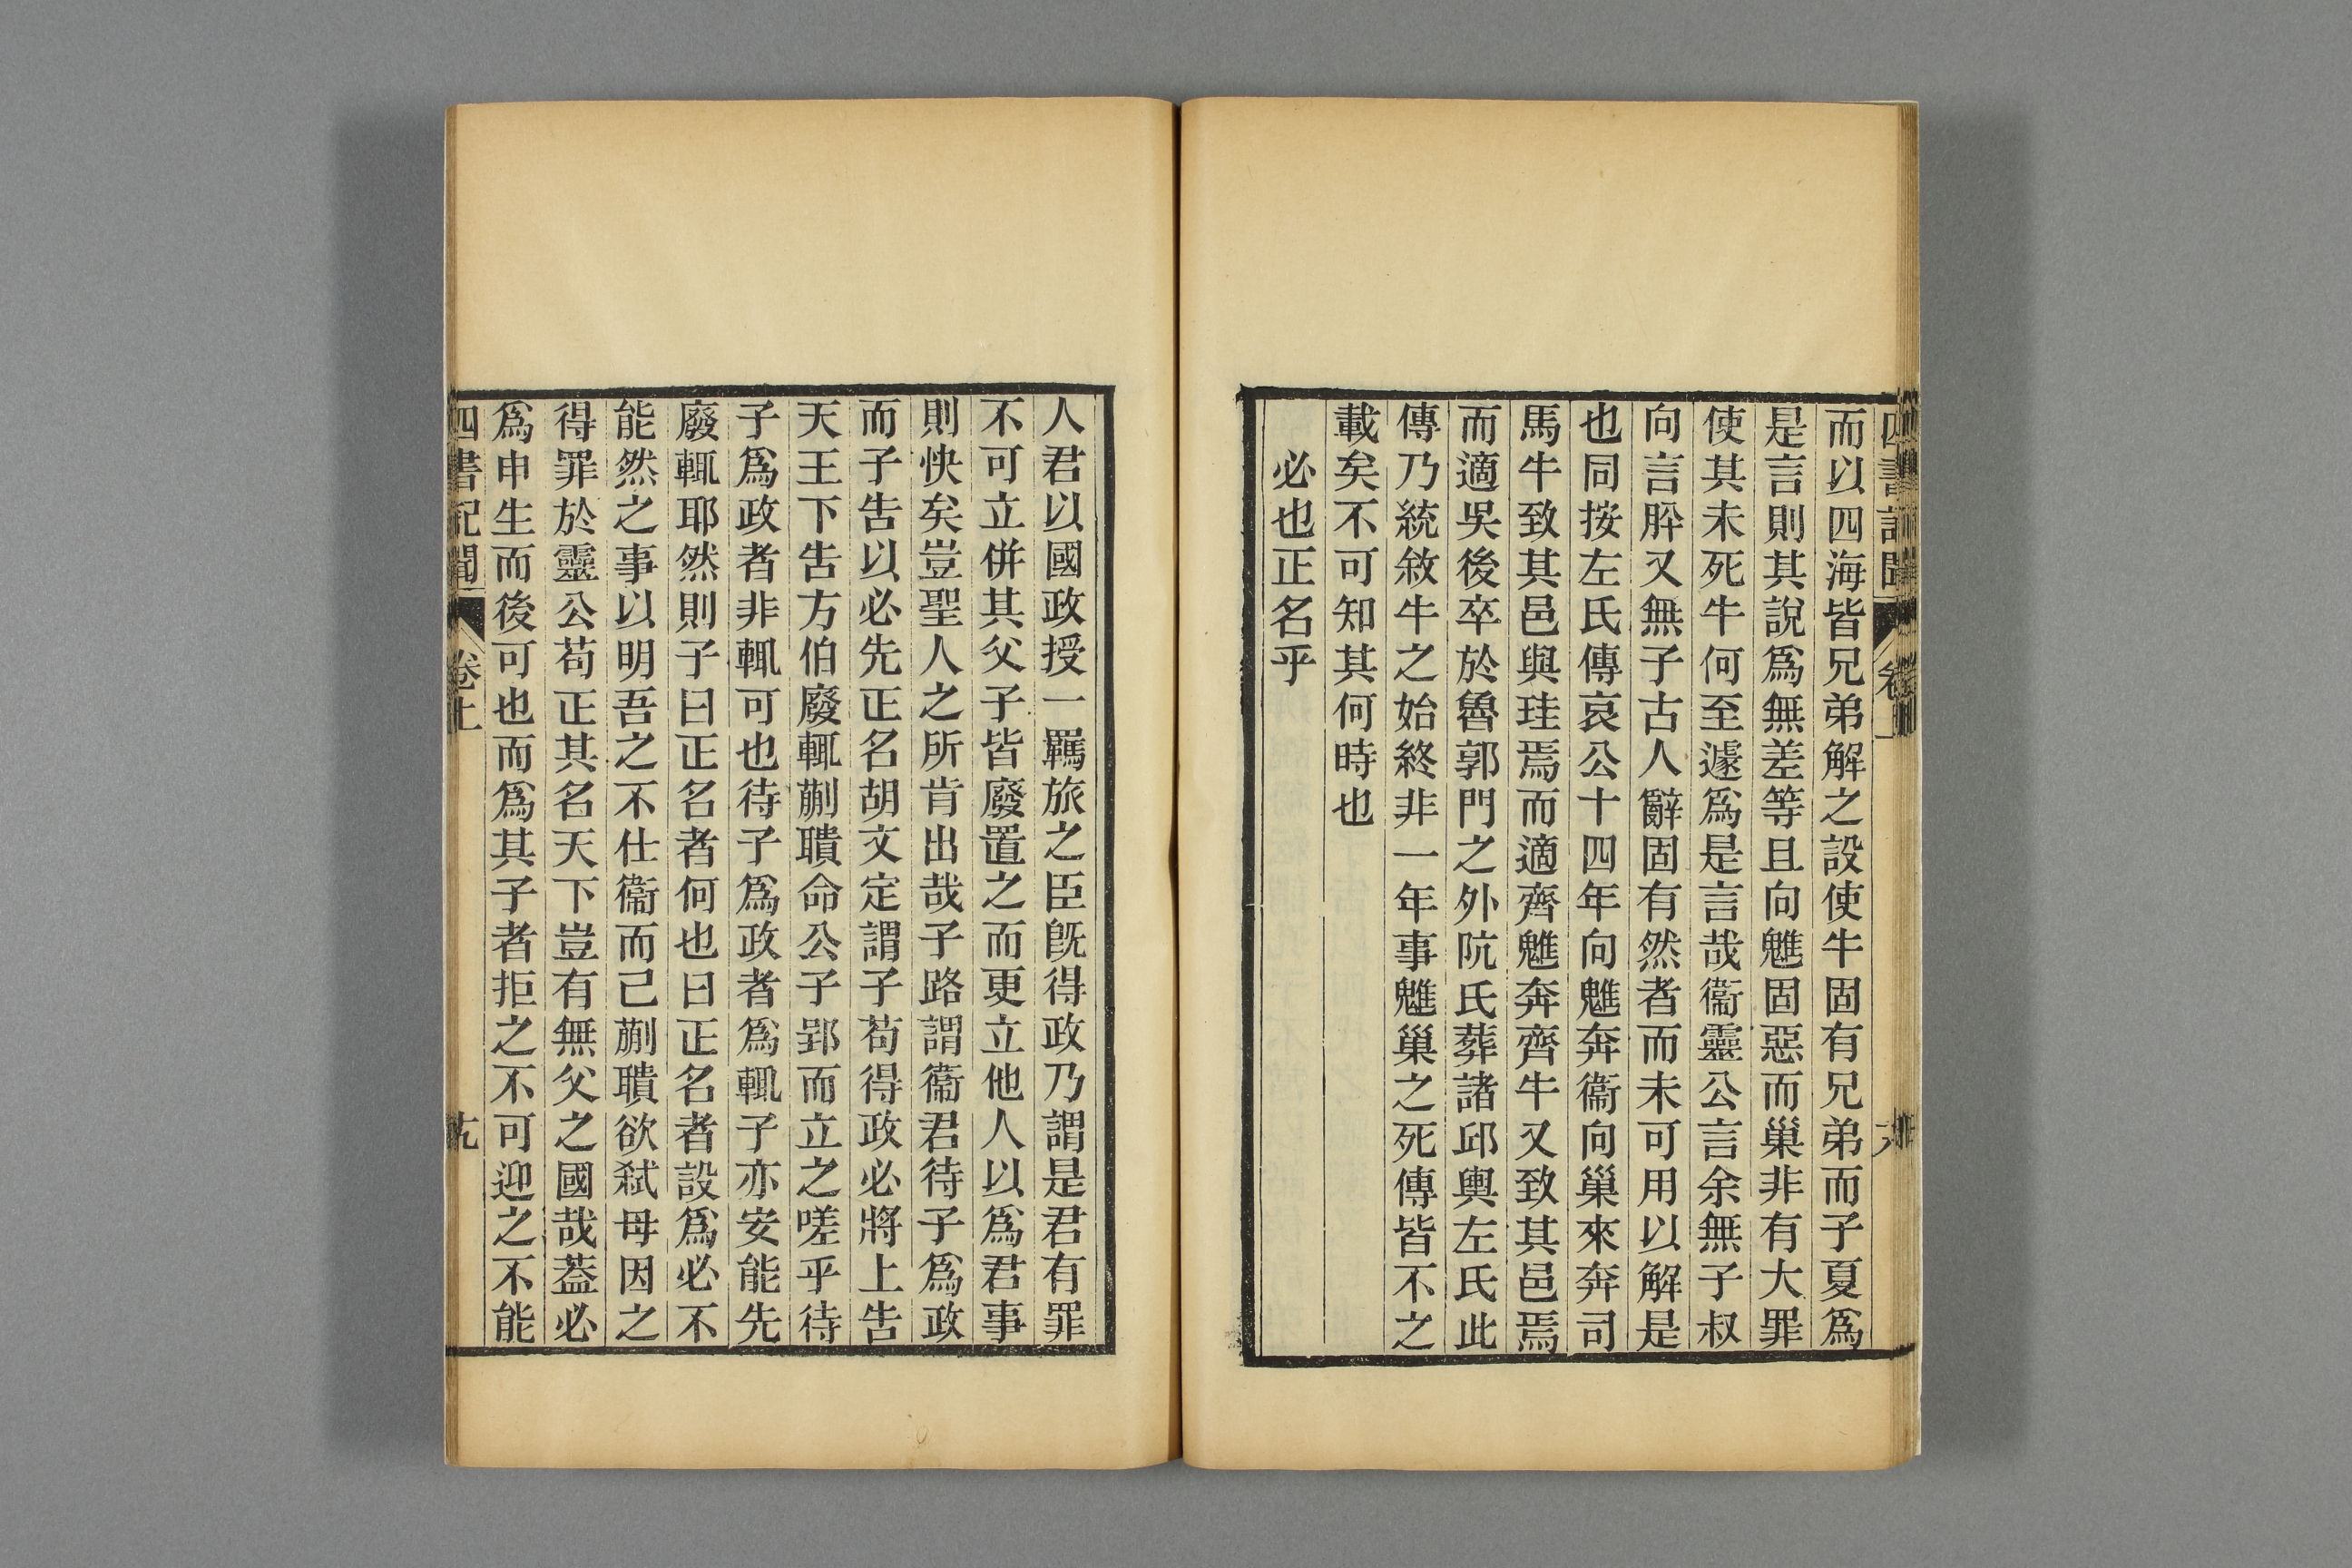 四書記聞 卷上 六
而以四海皆兄弟解之設使牛固有兄弟而子夏爲
是言則其說爲無差等且向魋固惡而巢非有大罪
使其未死牛何至遽爲是言哉衞靈公言余無子叔
向言肸又無子古人辭固有然者而未可用以解是
也同按左氏傳哀公十四年向魋奔衞向巢來奔司
馬牛致其邑與珪焉而適齊魋奔齊牛又致其邑焉
而適吳後卒於魯郭門之外阬氏葬諸邱輿左氏此
傳乃統敘牛之始終非一年事魋巢之死傳皆不之
載矣不可知其何時也
必也正名乎
人君以國政授一羈旅之臣旣得政乃謂是君有罪
不可立併其父子皆廢置之而更立他人以爲君事
則快矣豈聖人之所肯出哉子路謂衞君待子爲政
而子告以必先正名胡文定謂子苟得政必將上告
天王下告方伯廢輒蒯聵命公子郢而立之嗟乎待
子爲政者非輒可也待子爲政者爲輒子亦安能先
廢輒耶然則子曰正名者何也曰正名者設爲必不
能然之事以明吾之不仕衞而已蒯聵欲弒母因之
得罪於靈公苟正其名天下豈有無父之國哉葢必
爲申生而後可也而爲其子者拒之不可迎之不能
四書記聞 卷上